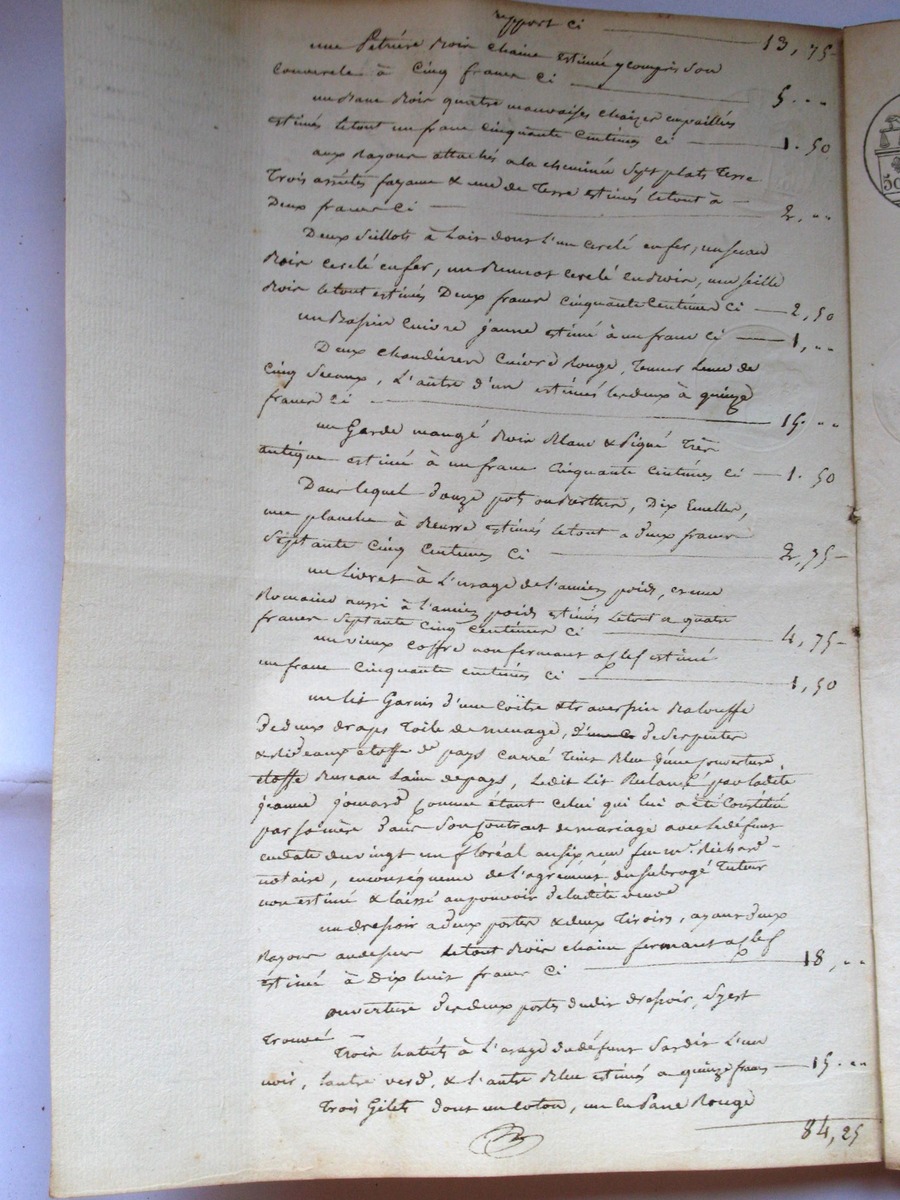 rapport ci 13,75
une Petriére Bois chaine estimé y compris son
couvercle à Cinq francs Ci 5...
un Banc Bois quatre mauvaises chaizes empaillés
estimés letout un franc cinquante centimes ci 1.50
aux Rayons attachés a la cheminée Sept plats Terre
Trois assiétés fayance & une de Terre estimés letout à
Deux francs Ci 2,..
Deux Seillots à Lait dont l'un cerclé en fer, un seau
Bois cerclé en fer, un cerclé en Bois, une seille
Bois letout estimés Deux francs cinquante centimes ci 2,50
un Bassin Cuivre jaune estimé à un franc ci 1,..
Deux chaudieres Cuivre Rouge, tenues L'une de
Cinq Seaux, L'autre d'un estimés les deux à quinze
francs Ci 15...
un Garde mangé Bois Blanc & Piqué Très
antique estimé à un franc cinquante centimes ci 1.50
Dans lequel Douze pots, Dix Ecuelles,
une planche à Beurre estimés letout a deux francs
Septante Cinq Centimes Ci 2,75
un Livret à L'usage de l'ancien poids, & une
Romaine aussi à l'ancien poids estimés letout a quatre
francs Septante Cinq Centimes Ci 4,75
un vieux coffre non fermant a clef estimé
un franc Cinquante centimes Ci 1,50
un lit Garnis d'une Coëtre & traverpin Balouffe
de deux draps Toile de menage, de serpentes
& rideaux étoffe de pays carré Teint Bleu d'une couverture
étoffe Bureau Laine de pays, Ledit Lit Reclamé par ladite
jeanne jouvard comme étant celui qui lui a été Constitué
par sa mère dans son contrat de mariage avec le défunt
en date du vingt un floréal an six reçu fur me. Richard
notaire, en conséquence de l'agrément du subrogé Tuteur
non estimé & laissé au pouvoir de ladite veuve
un dressoir a deux portes & deux Tiroirs, ayant deux
Rayons au dessus letout Bois chaine fermant a clef
estimé à Dix huit francs Ci 18,..
ouverture des deux portes dudit dressoir, s'y est
Trouvé
Trois habits à L'usage du défunt Sardis L'un
noir, l'autre verd, & l'autre Bleu estimés a quinze francs 15...
Trois Gilets dont un coton, un en Pane Rouge
84,25